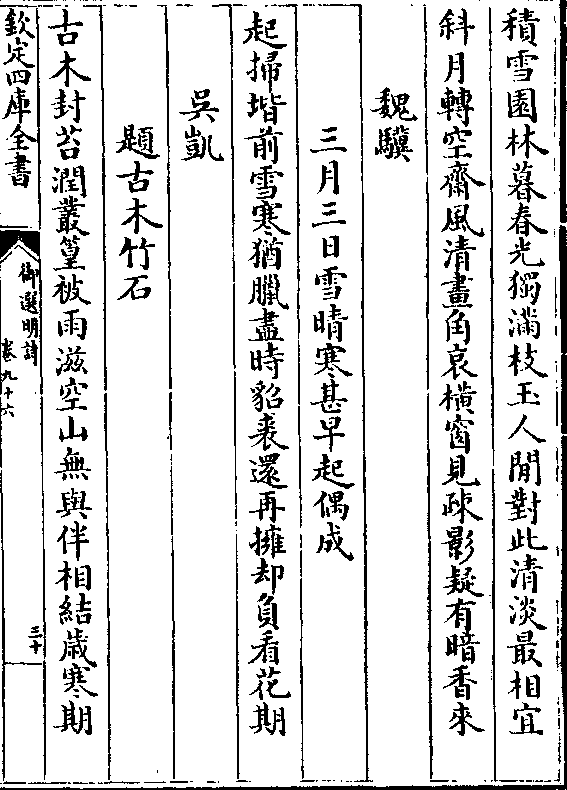 積雪園林暮春光獨滿枝玉人閒對此清淡最相宜
斜月轉空齋風清畫角哀橫窗見疎影疑有暗香來
魏驥
三月三日雪晴寒甚早起偶成
起掃堦前雪寒猶臘盡時貂裘還再擁却負看花期
吳凱
題古木竹石
古木封苔潤叢篁被雨滋空山無與伴相結歳寒期
欽定四庫全書
御選明詩
卷九十六
三十